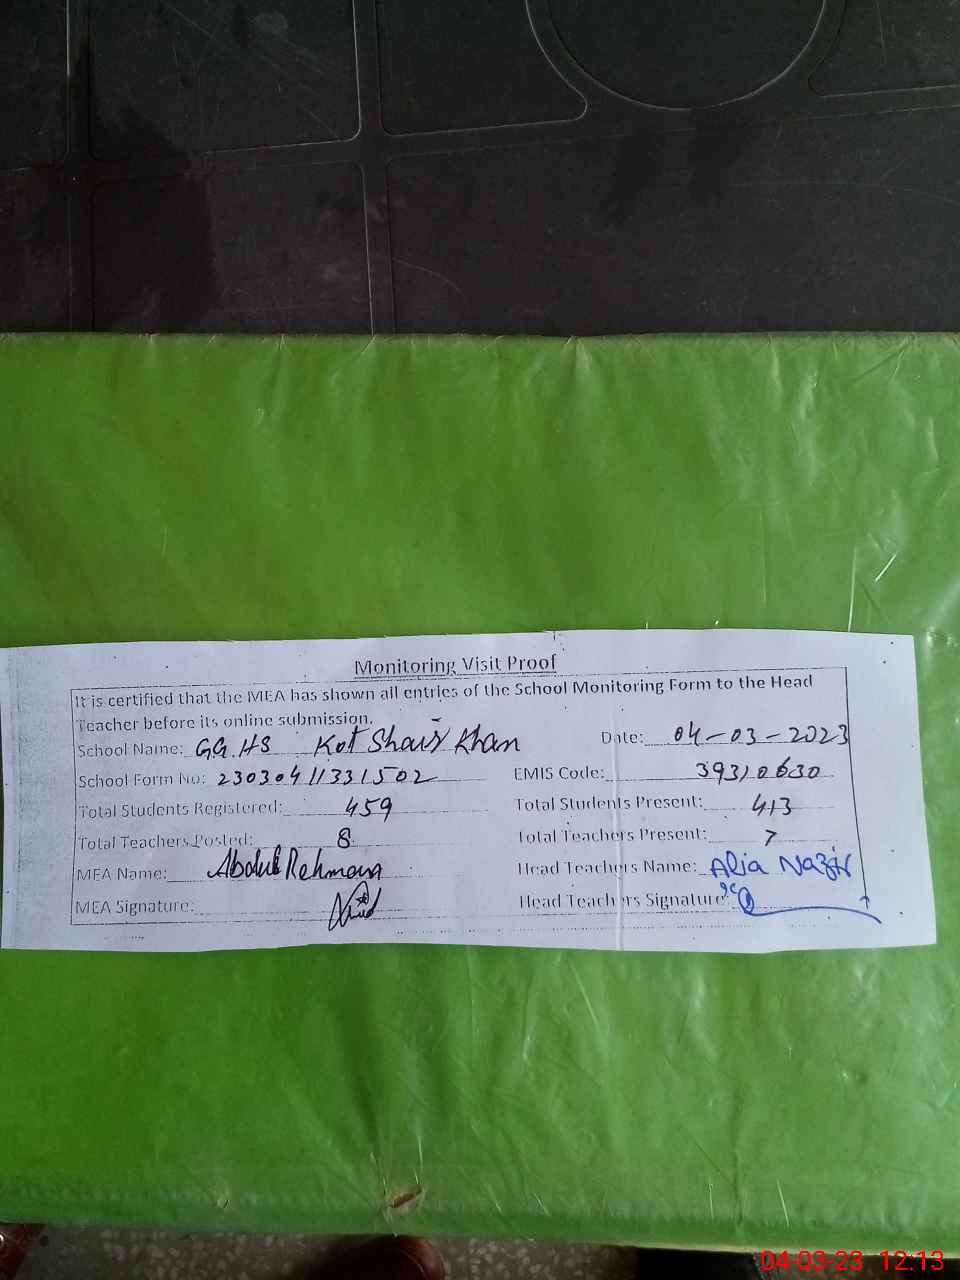 Monitoring Visit Proof
It is certified that the MEA has shown all entries of the School Monitoring Form to the Head
Teacher before its online submission.
School Name: GG.HS Kot Shair Khan Date: 04-03-2023
School Form No: 23030411331502 EMIS Code: 39310630
Total Students Registered: 459 Total Students Present: 413
Total Teachers Posted: 8 Total Teachers Present: 7
MEA Name: Abdul Rehman Head Teachers Name: Alia Nazir
MEA Signature: Head Teachers Signature:
04-03-23 12:13